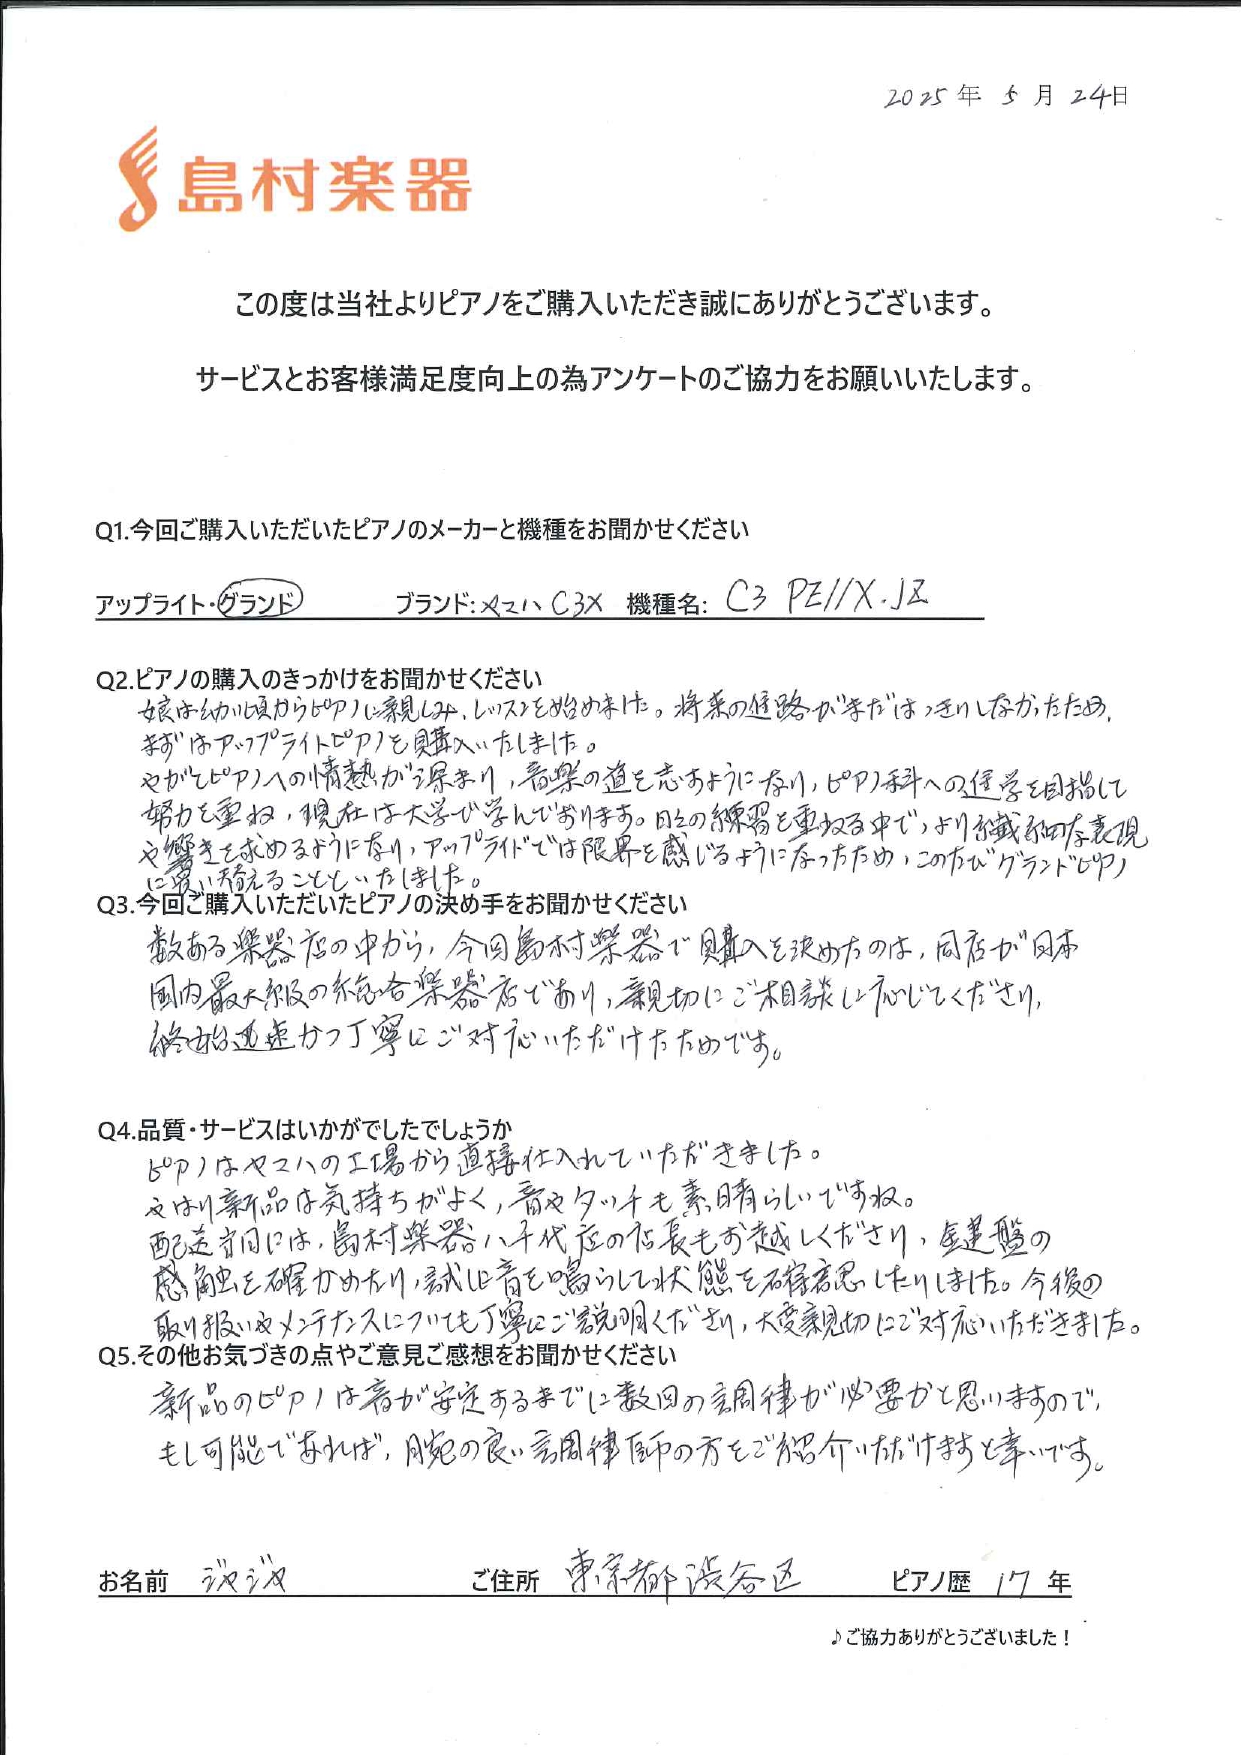 2025年 5月 24日
島村楽器
この度は当社よりピアノをご購入いただき誠にありがとうございます。
サービスとお客様満足度向上の為アンケートのご協力をお願いいたします。
Q1.今回ご購入いただいたピアノのメーカーと機種をお聞かせください
アップライト・グランド ブランド:ヤマハ C3X 機種名: C3 PE//X.JZ
Q2.ピアノの購入のきっかけをお聞かせください
娘は幼い頃からピアノに親しみ、レッスンを始めました。将来の進路がまだはっきりしなかったため、
まずはアップライトピアノを購入いたしました。
やがてピアノへの情熱が深まり、音楽の道を志すようになり、ピアノ科への進学を目指して
努力を重ね、現在は大学で学んでおります。日々の練習を重ねる中で、より繊細な表現
や響きを求めるようになり、アップライトでは限界を感じるようになったため、このたびグランドピアノ
に買い替えることといたしました。
Q3.今回ご購入いただいたピアノの決め手をお聞かせください
数ある楽器店の中から、今回島村楽器で購入を決めたのは、同店が日本
国内最大級の総合楽器店であり、親切にご相談に応じてくださり、
終始迅速かつ丁寧にご対応いただけたためです。
Q4.品質・サービスはいかがでしたでしょうか
ピアノはヤマハの工場から直接仕入れていただきました。
やはり新品は気持ちがよく、音やタッチも素晴らしいですね。
配送当日には、島村楽器八千代店の店長もお越しくださり、鍵盤の
感触を確かめたり、試しに音を鳴らして状態を確認したりしました。今後の
取り扱いやメンテナンスについても丁寧にご説明くださり、大変親切にご対応いただきました。
Q5.その他お気づきの点やご意見ご感想をお聞かせください
新品のピアノは音が安定するまでに数回の調律が必要かと思いますので、
もし可能であれば、腕の良い調律師の方をご紹介いただけますと幸いです。
お名前 ジャジャ ご住所 東京都渋谷区 ピアノ歴 17 年
♪ご協力ありがとうございました！